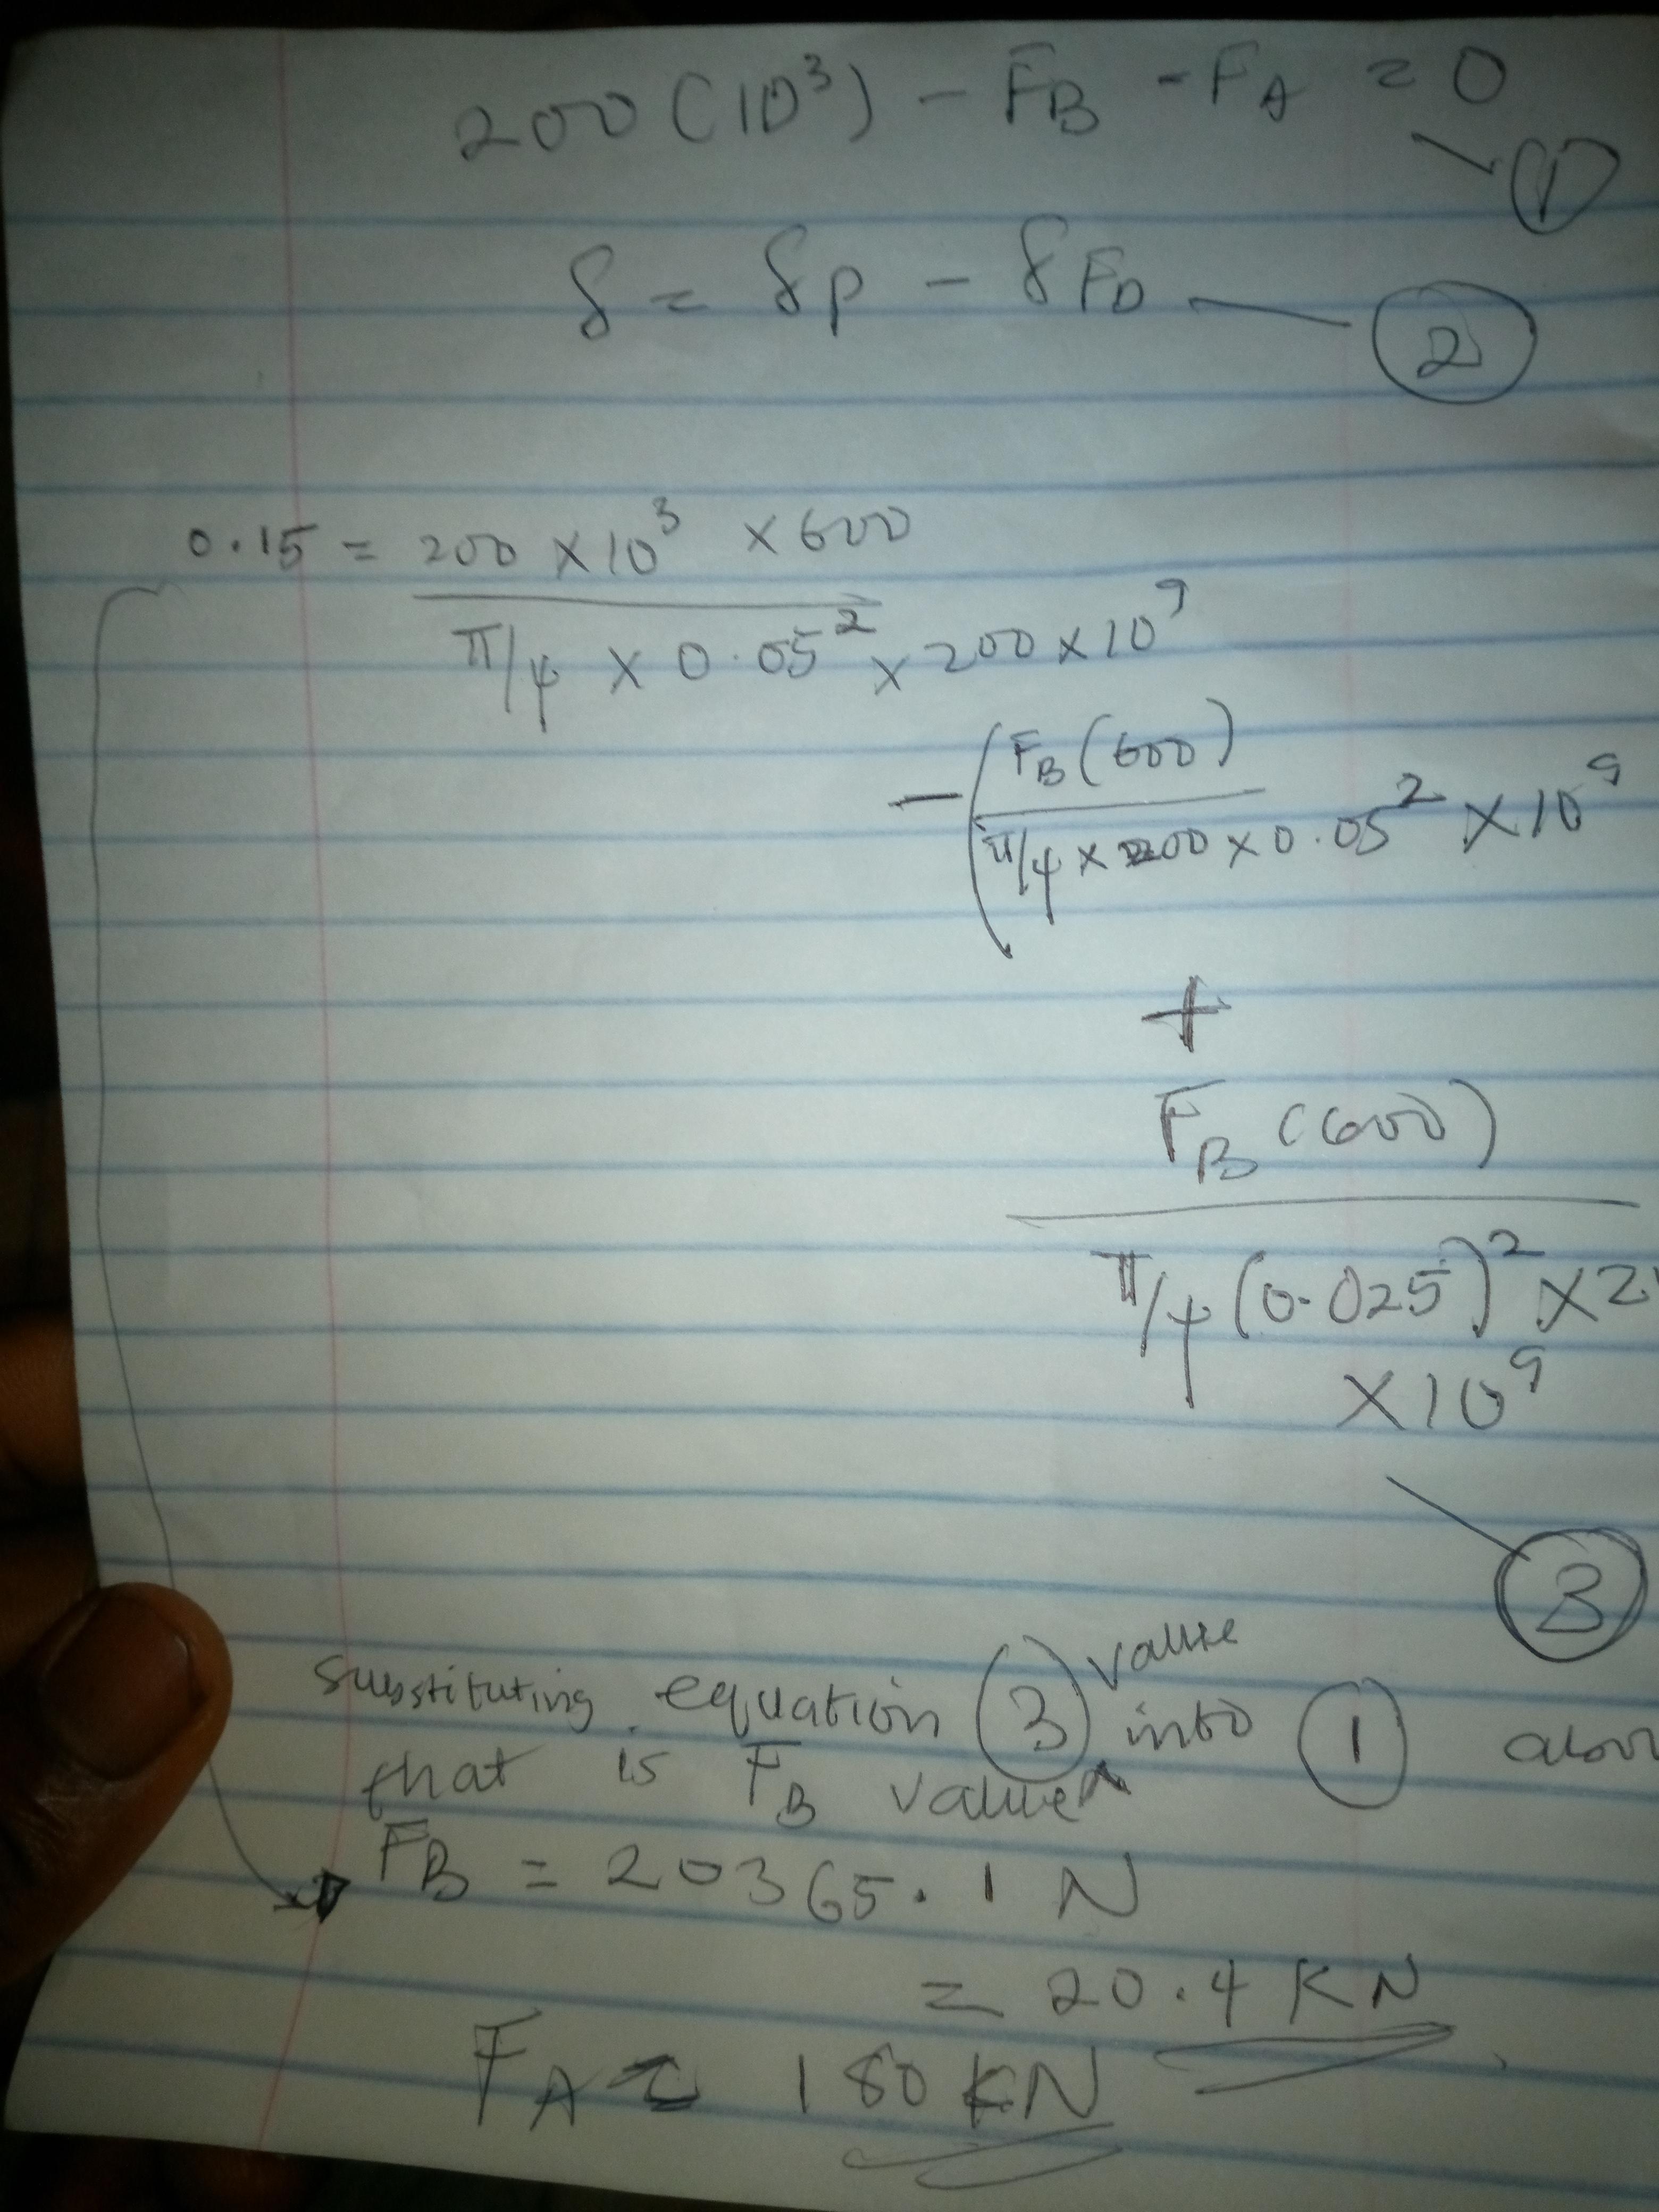 200(10³) - FB - FA = 0
①
δ = δP - δFB
②
0.15 = 200 × 10³ × 600
π/4 × 0.05² × 200 × 10⁹
- ( FB(600)
π/4 × 200 × 0.05² × 10⁹
+
FB(600)
π/4 (0.025)² × 2
× 10⁹
③
substituting equation ③ value into ①
that is FB value
FB = 20365.1 N
= 20.4 KN
FA = 180 KN